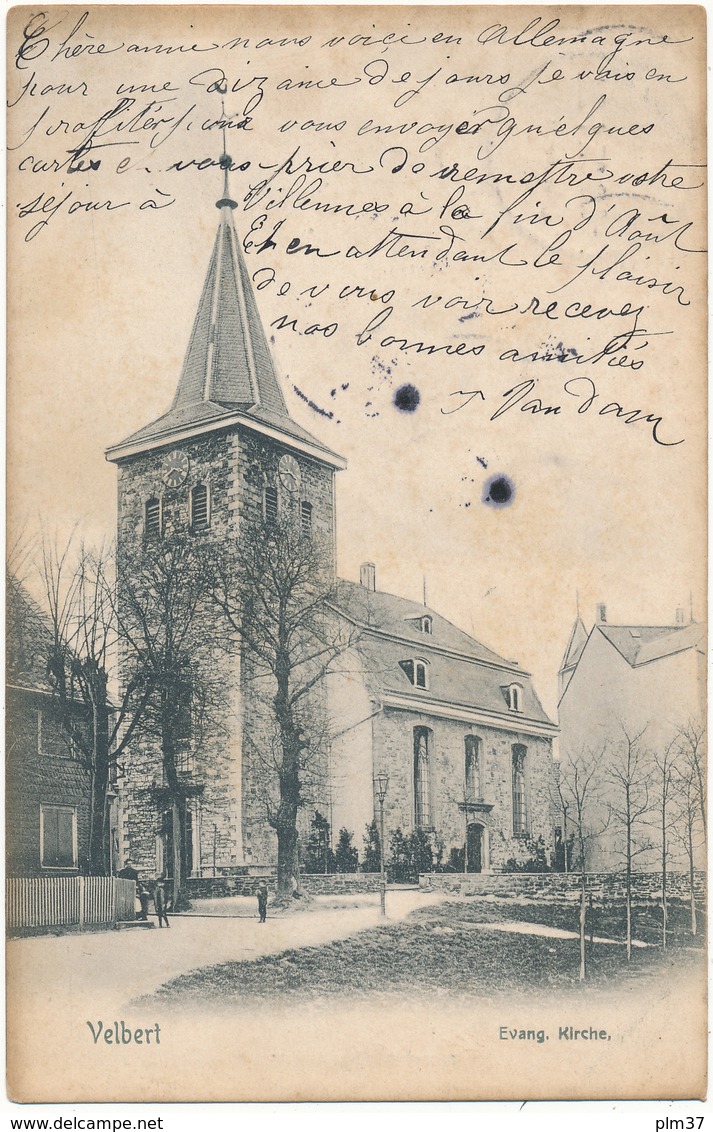 Chère amie nous voici en Allemagne
pour une dizaine de jours je vais en
proffiter pour vous envoyer quelques
cartes et vous prier de remettre votre
séjour à Villennes à la fin d'Août
Et en attendant le plaisir
de vous voir recevez
nos bonnes amitiés
J Van Dam
Velbert
Evang. Kirche,
delcampe.net
plm37